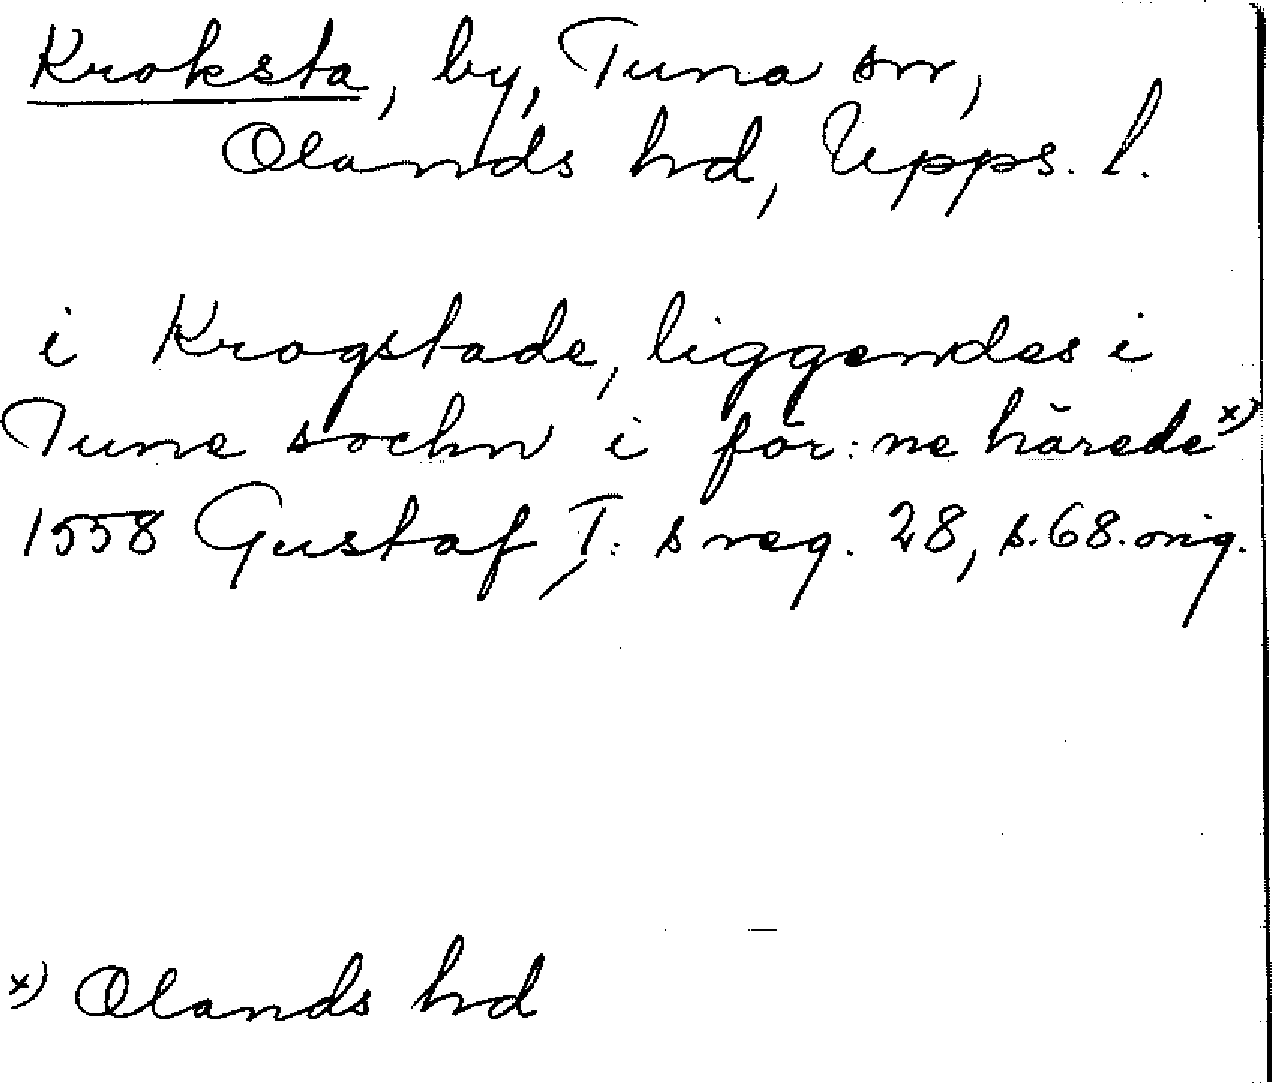 Kroksta, by, Tuna sn,
Olands hd, Upps. l.
i Krogstade, liggendes i
Tune sochn i för:ne härede x)
1558 Gustaf I: s reg. 28, s. 68. orig.
x) Olands hd